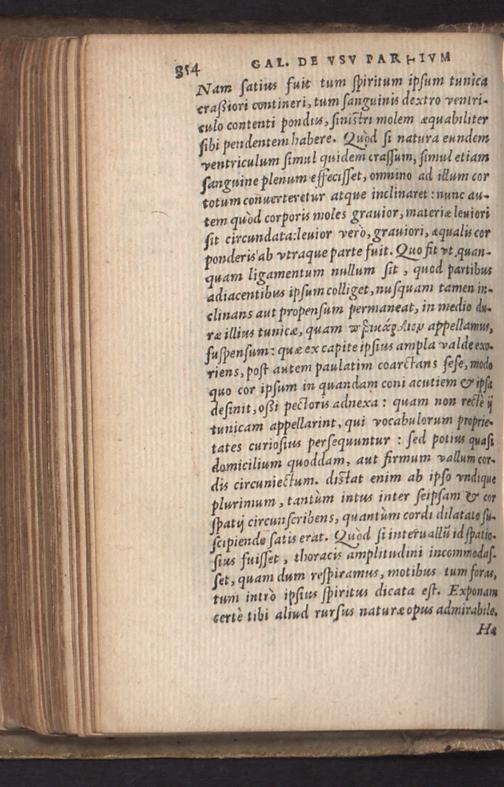 354
GAL. DE VSV PARTIVM
Nam ſatius fuit tum ſpiritum ipſum tunica
craſsiori contineri, tum ſanguinis dextro ventri-
culo contenti pondus, ſiniſtri molem æquabiliter
ſibi pendentem habere. Quòd ſi natura eundem
ventriculum ſimul quidem craſſum, ſimul etiam
ſanguine plenum effeciſſet, omnino ad illum cor
totum conuerteretur atque inclinaret: nunc au-
tem quòd corporis moles grauior, materiæ leuiori
ſit circundata: leuior verò, grauiori, æqualis cor
ponderis ab vtraque parte fuit. Quo fit vt, quan-
quam ligamentum nullum ſit, quod partibus
adiacentibus ipſum colliget, nuſquam tamen in-
clinans aut propenſum permaneat, in medio du-
ræ illius tunicæ, quam περικάρδιον appellamus,
ſuſpenſum: quæ ex capite ipſius ampla valde exo-
riens, poſt autem paulatim coarctans ſeſe, modo
quo cor ipſum in quandam coni acutiem & ipſa
deſinit, oſsi pectoris adnexa: quam non rectè ij
tunicam appellarint, qui vocabulorum proprie-
tates curioſius perſequuntur: ſed potius quaſi
domicilium quoddam, aut firmum vallum cor-
dis circuniectum. diſtat enim ab ipſo vndique
plurimum, tantùm intus inter ſeipſam & cor
ſpatij circunſcribens, quantùm cordi dilatate ſu-
ſcipiendo ſatis erat. Quòd ſi interuallũ id ſpatio-
ſius fuiſſet, thoracis amplitudini incommodaſ-
ſet, quam dum reſpiramus, motibus tum foras,
tum intrò ipſius ſpiritus dicata eſt. Exponam
certè tibi aliud rurſus naturæ opus admirabile.
Ha